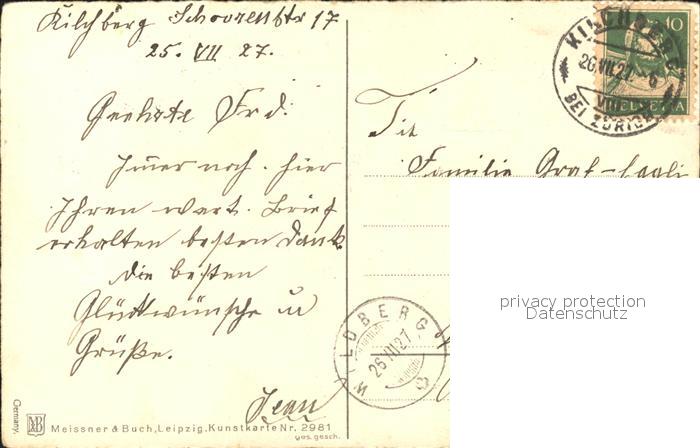 Kilchberg Schoorenstr 17
25. VII 27.
Geehrte Frd.
Immer noch. hier
Ihren wert. Brief
erhalten besten Dank.
die besten
Glückwünsche u
Grüße.
Jean
Tit
Familie Graf-
10
HELVETIA
KILCHBERG
26.VII.27.-6
VII
BEI ZÜRICH
WILDBERG
26.VII.27
privacy protection
Datenschutz
Germany.
MB
Meissner & Buch, Leipzig, Kunstkarte Nr. 2981
ges. gesch.